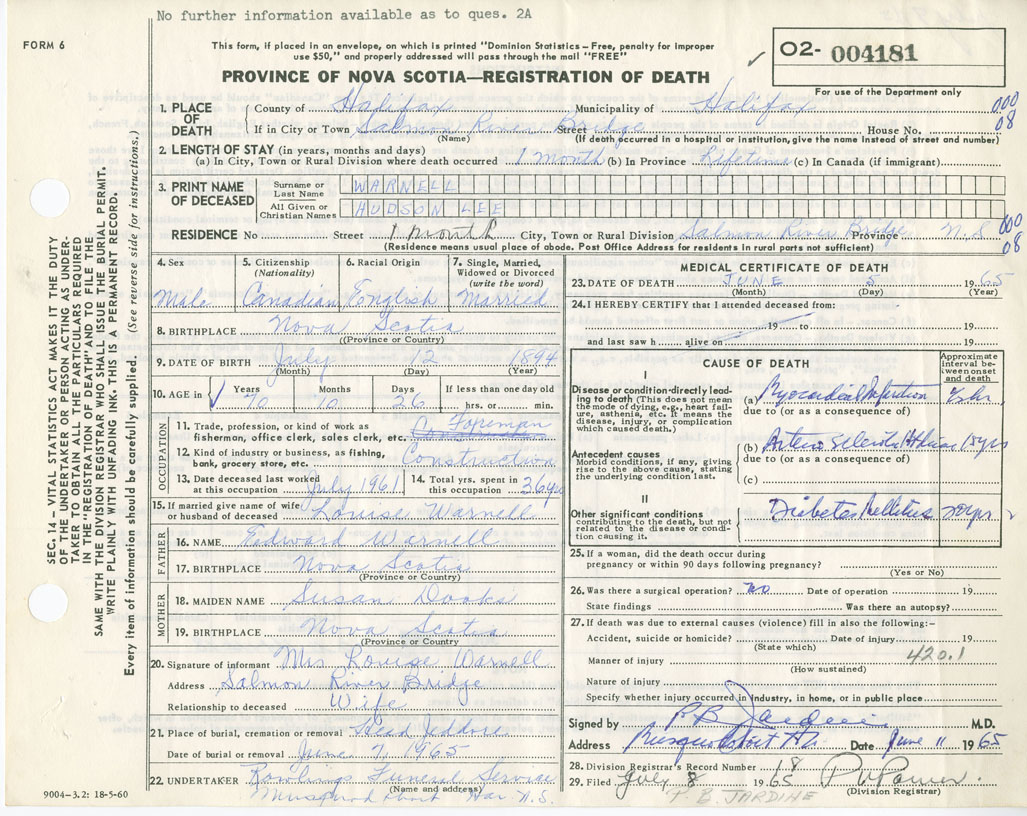 No further information available as to ques. 2A
FORM 6
This form, if placed in an envelope, on which is printed "Dominion Statistics – Free, penalty for improper
use $50," and properly addressed will pass through the mail "FREE"
O2- 004181
PROVINCE OF NOVA SCOTIA—REGISTRATION OF DEATH
For use of the Department only
1. PLACE OF DEATH
County of Halifax Municipality of Halifax
000
08
If in City or Town Salmon River Bridge Street House No.
(Name) (If death occurred in a hospital or institution, give the name instead of street and number)
2. LENGTH OF STAY (in years, months and days)
(a) In City, Town or Rural Division where death occurred 1 month (b) In Province Lifetime (c) In Canada (if immigrant)
3. PRINT NAME OF DECEASED
Surname or Last Name WARNELL
All Given or Christian Names HUDSON LEE
RESIDENCE No Street 1 month City, Town or Rural Division Salmon River Bridge Province N.S
000
08
(Residence means usual place of abode. Post Office Address for residents in rural parts not sufficient)
4. Sex
Male
5. Citizenship
(Nationality)
Canadian
6. Racial Origin
English
7. Single, Married,
Widowed or Divorced
(write the word)
Married
8. BIRTHPLACE Nova Scotia
((Province or Country)
9. DATE OF BIRTH July 12 1894
(Month) (Day) (Year)
10. AGE in
Years Months Days If less than one day old
70 10 26 hrs. or min.
OCCUPATION
11. Trade, profession, or kind of work as
fisherman, office clerk, sales clerk, etc. Foreman
12. Kind of industry or business, as fishing,
bank, grocery store, etc. Construction
13. Date deceased last worked
at this occupation July 1961
14. Total yrs. spent in
this occupation 36 yrs
15. If married give name of wife
or husband of deceased Louise Warnell
FATHER
16. NAME Edward Warnell
17. BIRTHPLACE Nova Scotia
(Province or Country)
MOTHER
18. MAIDEN NAME Susan Dooks
19. BIRTHPLACE Nova Scotia
(Province or Country)
20. Signature of informant Mrs Louise Warnell
Address Salmon River Bridge
Relationship to deceased Wife
21. Place of burial, cremation or removal Head Jeddore
Date of burial or removal June 7, 1965
22. UNDERTAKER Rowlings Funeral Service
(Name and address)
Musquodoboit Har. N.S.
9004-3.2: 18-5-60
MEDICAL CERTIFICATE OF DEATH
23. DATE OF DEATH JUNE 5 1965
(Month) (Day) (Year)
24. I HEREBY CERTIFY that I attended deceased from:
19 to 19
and last saw h alive on 19
CAUSE OF DEATH
Approximate
interval be-
tween onset
and death
I
Disease or condition directly lead-
ing to death (This does not mean
the mode of dying, e.g., heart fail-
ure, asthenia, etc. It means the
disease, injury, or complication
which caused death.)
(a) Myocardial Infarction
due to (or as a consequence of)
Antecedent causes
Morbid conditions, if any, giving
rise to the above cause, stating
the underlying condition last.
(b) Arterio sclerotic Ht Disease 15 yrs
due to (or as a consequence of)
(c)
II
Other significant conditions
contributing to the death, but not
related to the disease or condi-
tion causing it.
Diabetes Mellitus 20 yrs
25. If a woman, did the death occur during
pregnancy or within 90 days following pregnancy?
(Yes or No)
26. Was there a surgical operation? no Date of operation 19
State findings Was there an autopsy?
27. If death was due to external causes (violence) fill in also the following:–
Accident, suicide or homicide? Date of injury 19
(State which)
420.1
Manner of injury
(How sustained)
Nature of injury
Specify whether injury occurred in industry, in home, or in public place
Signed by P B Jardine M.D.
Address Musquodoboit Hr Date June 11 1965
28. Division Registrar's Record Number 18
29. Filed July 8 1965
(Division Registrar)
P. B. JARDINE
SEC. 14 – VITAL STATISTICS ACT MAKES IT THE DUTY
OF THE UNDERTAKER OR PERSON ACTING AS UNDER-
TAKER TO OBTAIN ALL THE PARTICULARS REQUIRED
IN THE "REGISTRATION OF DEATH" AND TO FILE THE
SAME WITH THE DIVISION REGISTRAR WHO SHALL ISSUE THE BURIAL PERMIT.
WRITE PLAINLY WITH UNFADING INK. THIS IS A PERMANENT RECORD.
Every item of information should be carefully supplied. (See reverse side for instructions.)